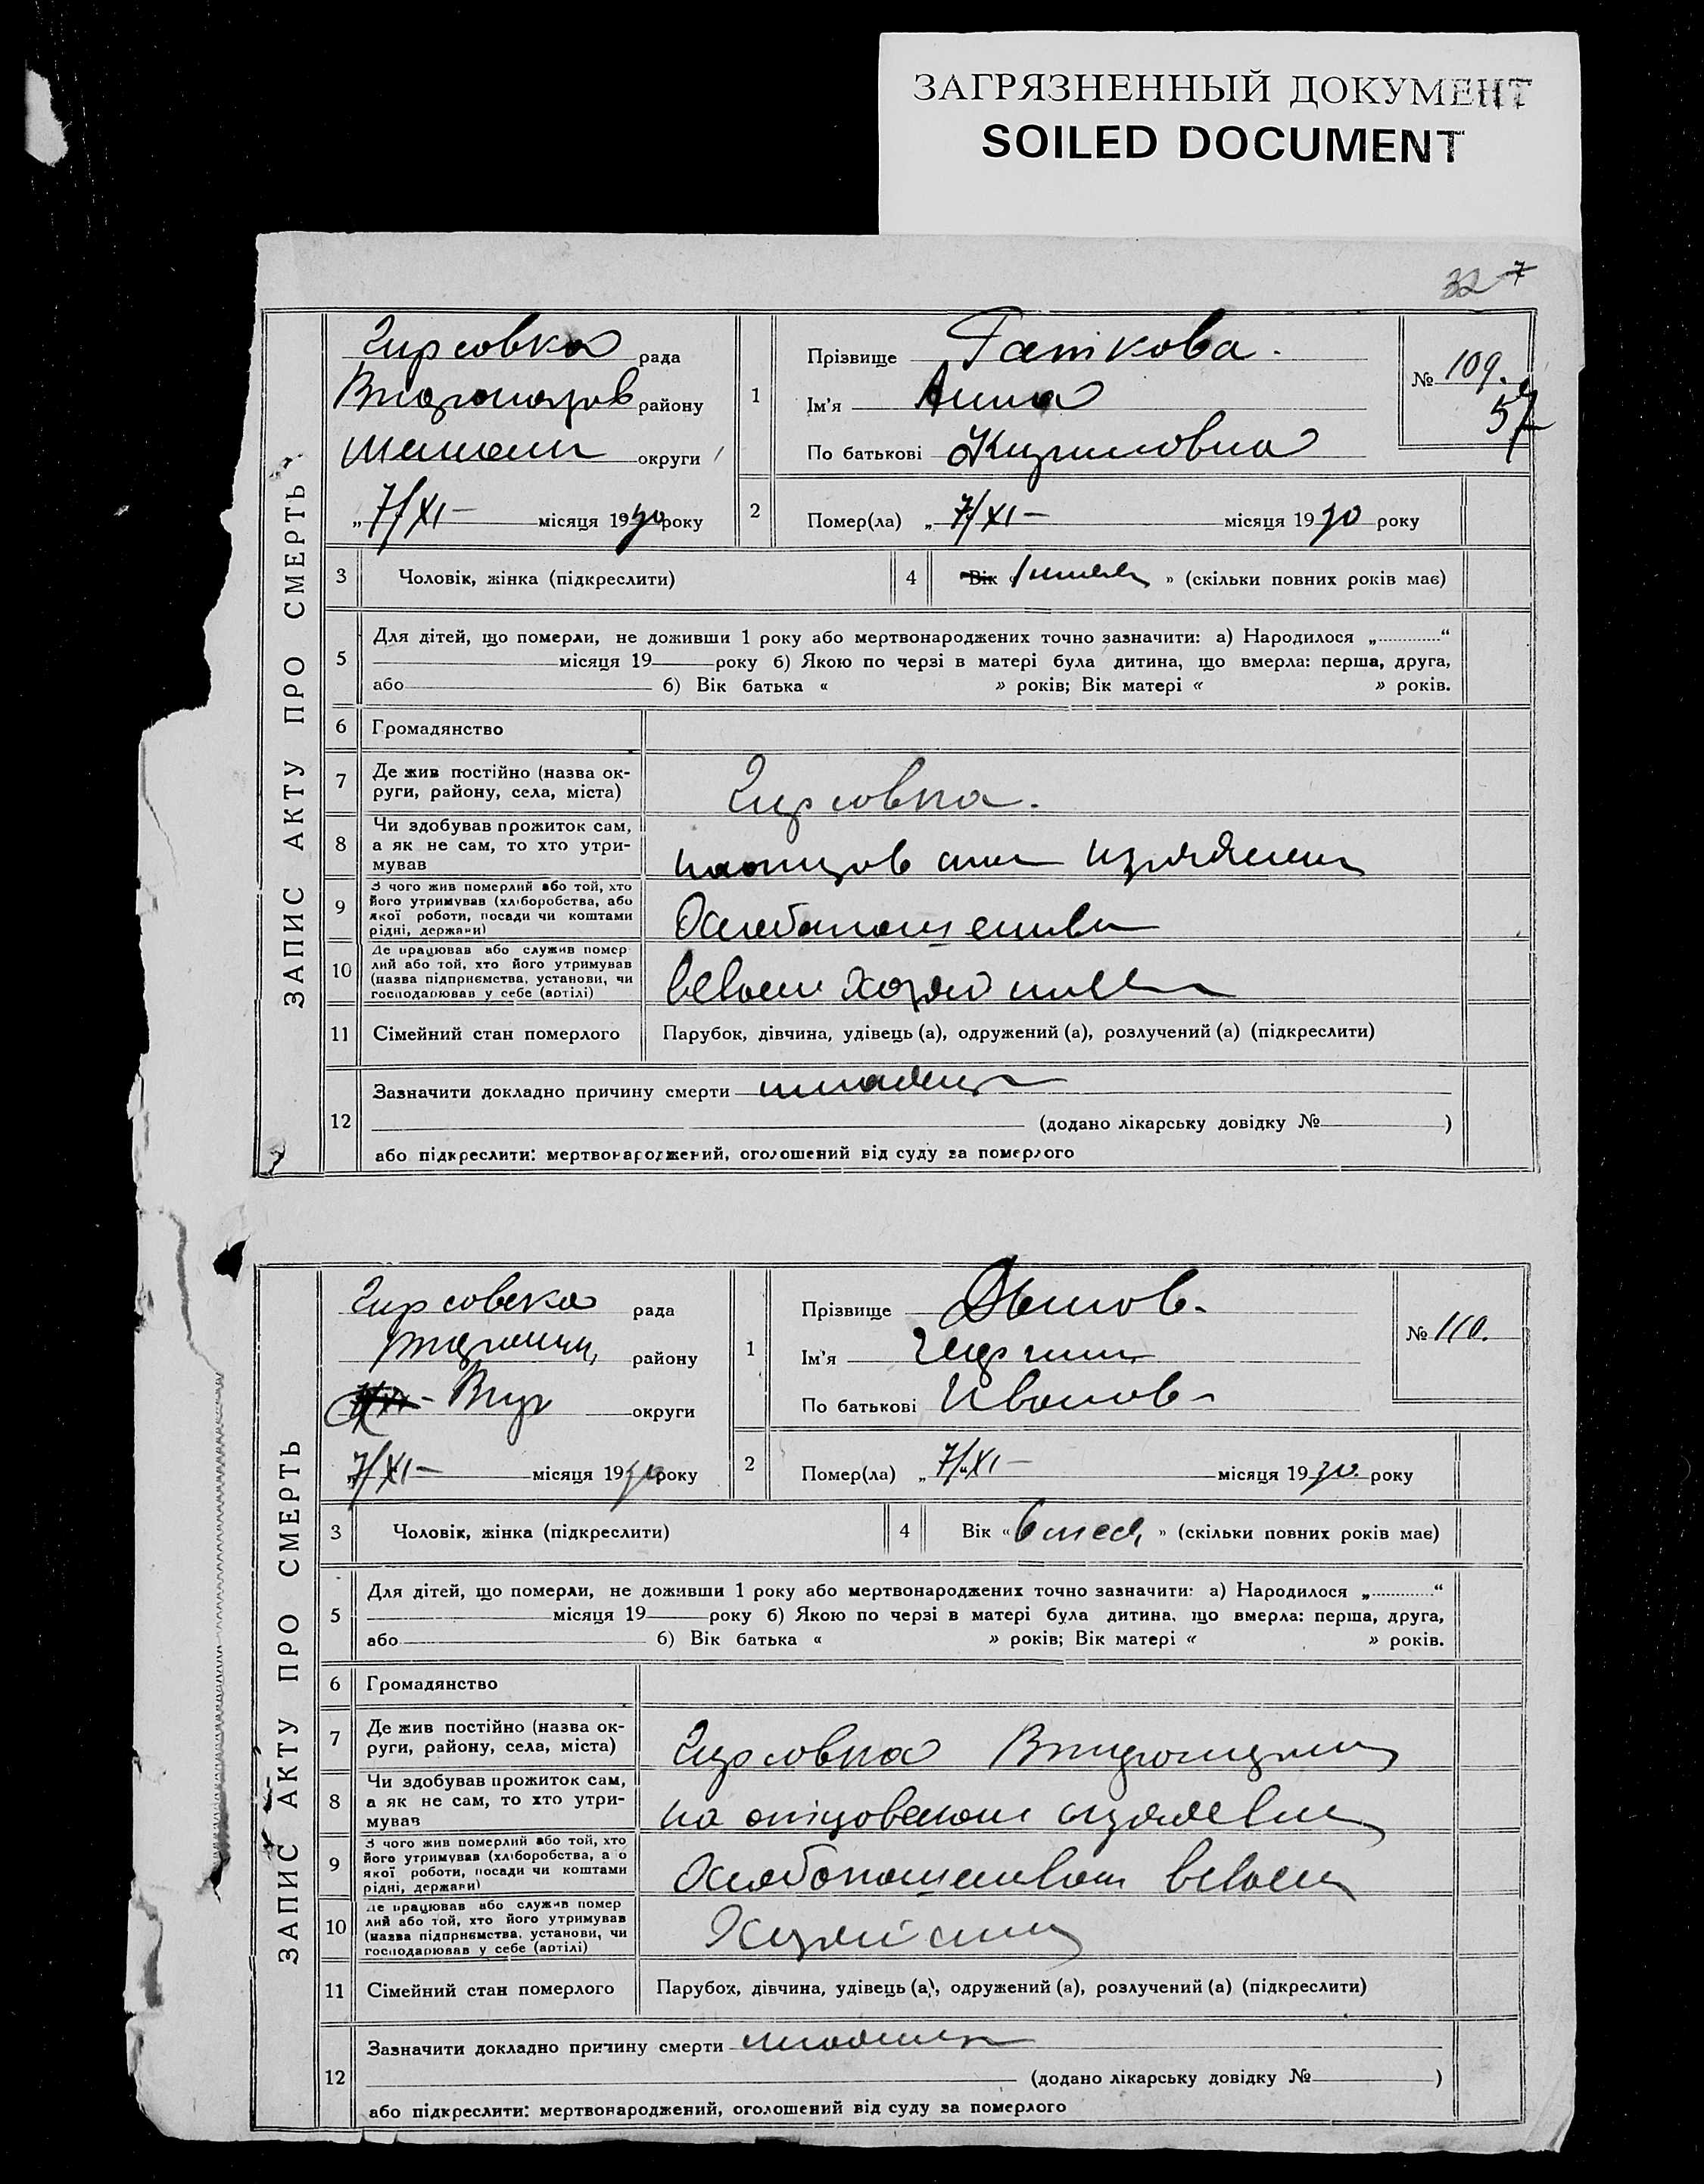 ЗАГРЯЗНЕННЫЙ ДОКУМЕНТ
SOILED DOCUMENT
32 7
ЗАПИС АКТУ ПРО СМЕРТЬ
Гирсовка рада
району
округи
„7/XI– місяця 1930 року
1
Прізвище Гаткова.
Ім'я Анна
По батькові
№ 109.
57
2
Помер(ла) „7/XI– місяця 1930 року
3 Чоловік, жінка (підкреслити)
4 Вік « » (скільки повних років має)
5
Для дітей, що померли, не доживши 1 року або мертвонароджених точно зазначити: а) Народилося „............“
місяця 19 року б) Якою по черзі в матері була дитина, що вмерла: перша, друга,
або б) Вік батька « » років; Вік матері « » років.
6 Громадянство
7 Де жив постійно (назва ок-
руги, району, села, міста)
Гирсовка.
8 Чи здобував прожиток сам,
а як не сам, то хто утри-
мував
9 З чого жив померлий або той, хто
його утримував (хліборобства, або
якої роботи, посади чи коштами
рідні, держави)
10 Де працював або служив помер
лий або той, хто його утримував
(назва підприємства, установи, чи
господарював у себе (артілі)
11 Сімейний стан померлого Парубок, дівчина, удівець (а), одружений (а), розлучений (а) (підкреслити)
12
Зазначити докладно причину смерти
(додано лікарську довідку № )
або підкреслити: мертвонароджений, оголошений від суду за померлого
ЗАПИС АКТУ ПРО СМЕРТЬ
Гирсовска рада
району
округи
„7/XI– місяця 1930 року
1
Прізвище
Ім'я
По батькові Иванов
№ 110.
2
Помер(ла) „7/XI– місяця 1930. року
3 Чоловік, жінка (підкреслити)
4 Вік «6 мес. » (скільки повних років має)
5
Для дітей, що померли, не доживши 1 року або мертвонароджених точно зазначити: а) Народилося „............“
місяця 19 року б) Якою по черзі в матері була дитина, що вмерла: перша, друга,
або б) Вік батька « » років; Вік матері « » років.
6 Громадянство
7 Де жив постійно (назва ок-
руги, району, села, міста)
Гирсовка
8 Чи здобував прожиток сам,
а як не сам, то хто утри-
мував
на отцовском
9 З чого жив померлий або той, хто
його утримував (хліборобства, а о
якої роботи, посади чи коштами
рідні, держави)
10 Де працював або служив помер
лий або той, хто його утримував
(назва підприємства, установи, чи
господарював у себе (артілі)
11 Сімейний стан померлого Парубок, дівчина, удівець (а), одружений (а), розлучений (а) (підкреслити)
12
Зазначити докладно причину смерти
(додано лікарську довідку № )
або підкреслити: мертвонароджений, оголошений від суду за померлого